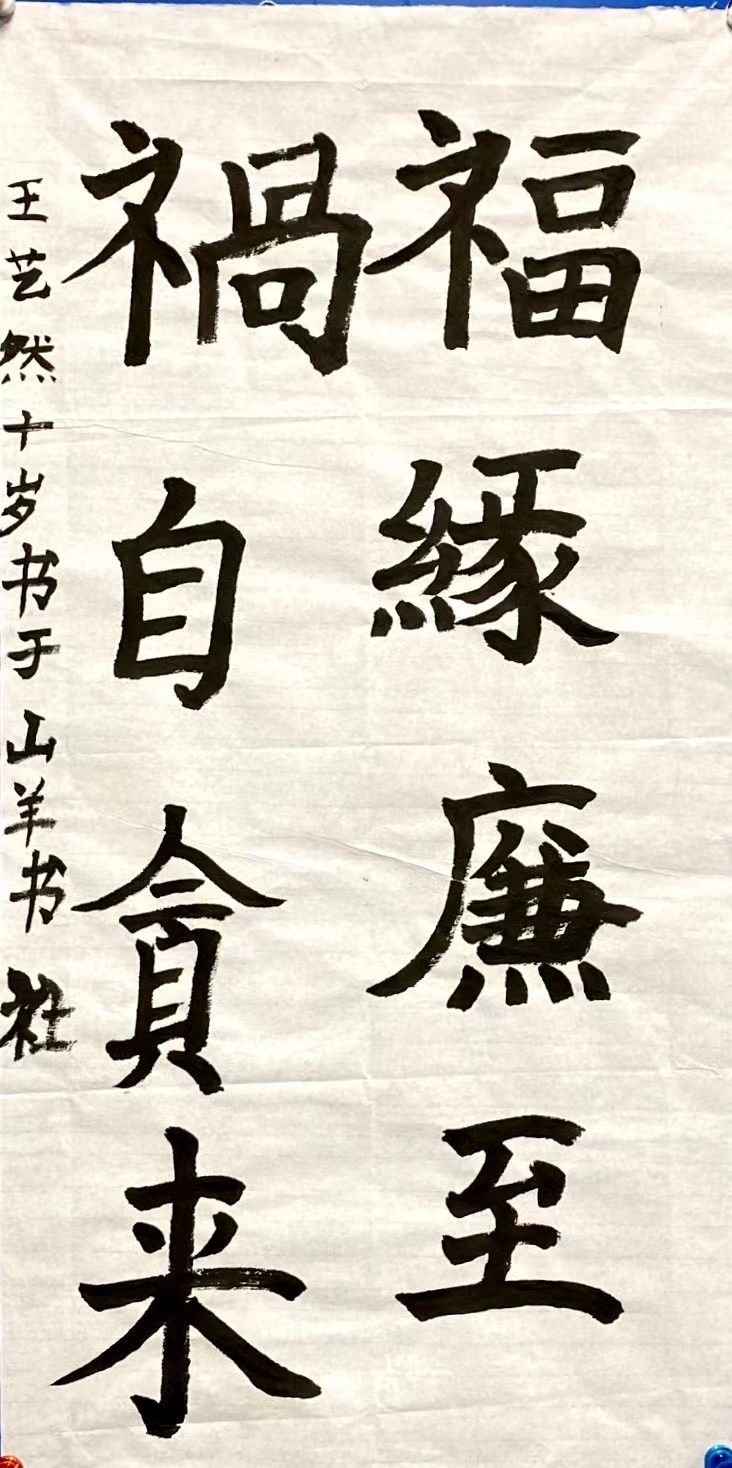 福緣廉至
禍自貪来
王艺然十岁书于山羊书社